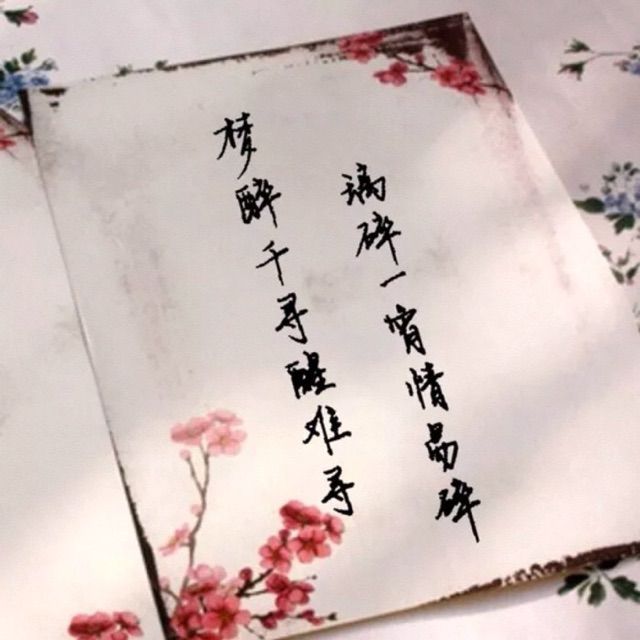 漓碎一宵情易碎
梦醉千寻醒难寻